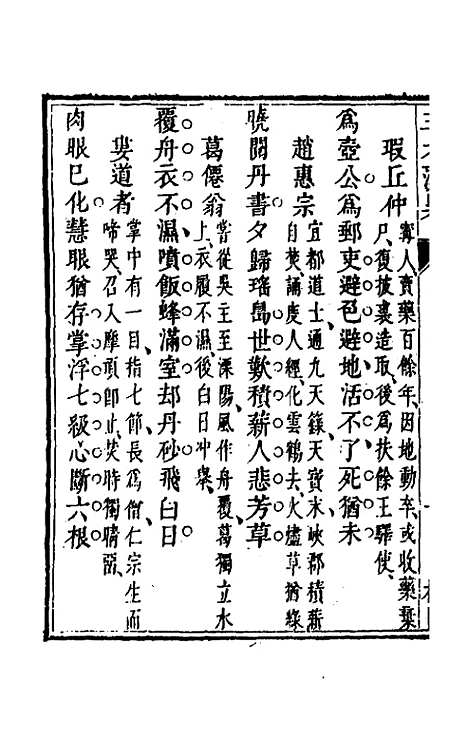 瑕丘仲
甯人賣藥百餘年因地動卒或收藥棄
尸復披裘造取後爲扶餘王驛使
爲壺公爲郵吏避色避地活不了死猶未
趙惠宗
宜都道士通九天籙天寶末峽郡積薪
自焚誦度人經化雲鶴去火燼草猶綠
曉閱丹書夕歸瑤島世歎積薪人悲芳草
葛僊翁
嘗從吳主至溧陽風作舟覆葛獨立水
上衣履不濕後白日冲舉
覆舟衣不濕噴飯蜂滿室却丹砂飛白日
婁道者
掌中有一目指七節長爲僧仁宗生而
啼哭召入摩頂卽止焚時獨睛䛩
肉眼已化慧眼猶存掌浮七級心斷六根